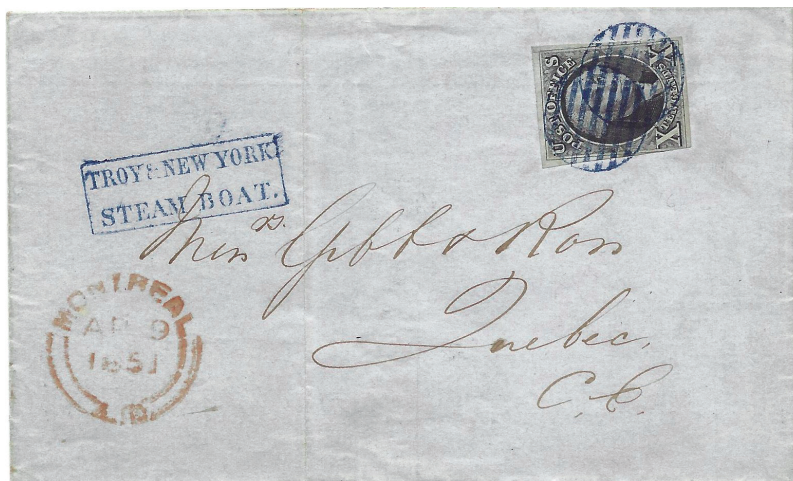 U S
POST OFFICE
X
TROY & NEW YORK
STEAM BOAT.
Messrs. Gibb & Ross
Quebec,
C. E.
MONTREAL
AP 9
1851
L.C.